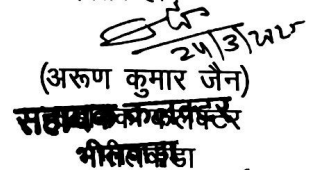 24/3/2025
(अरूण कुमार जैन)
सहायक कलक्टर
भीलवाडा